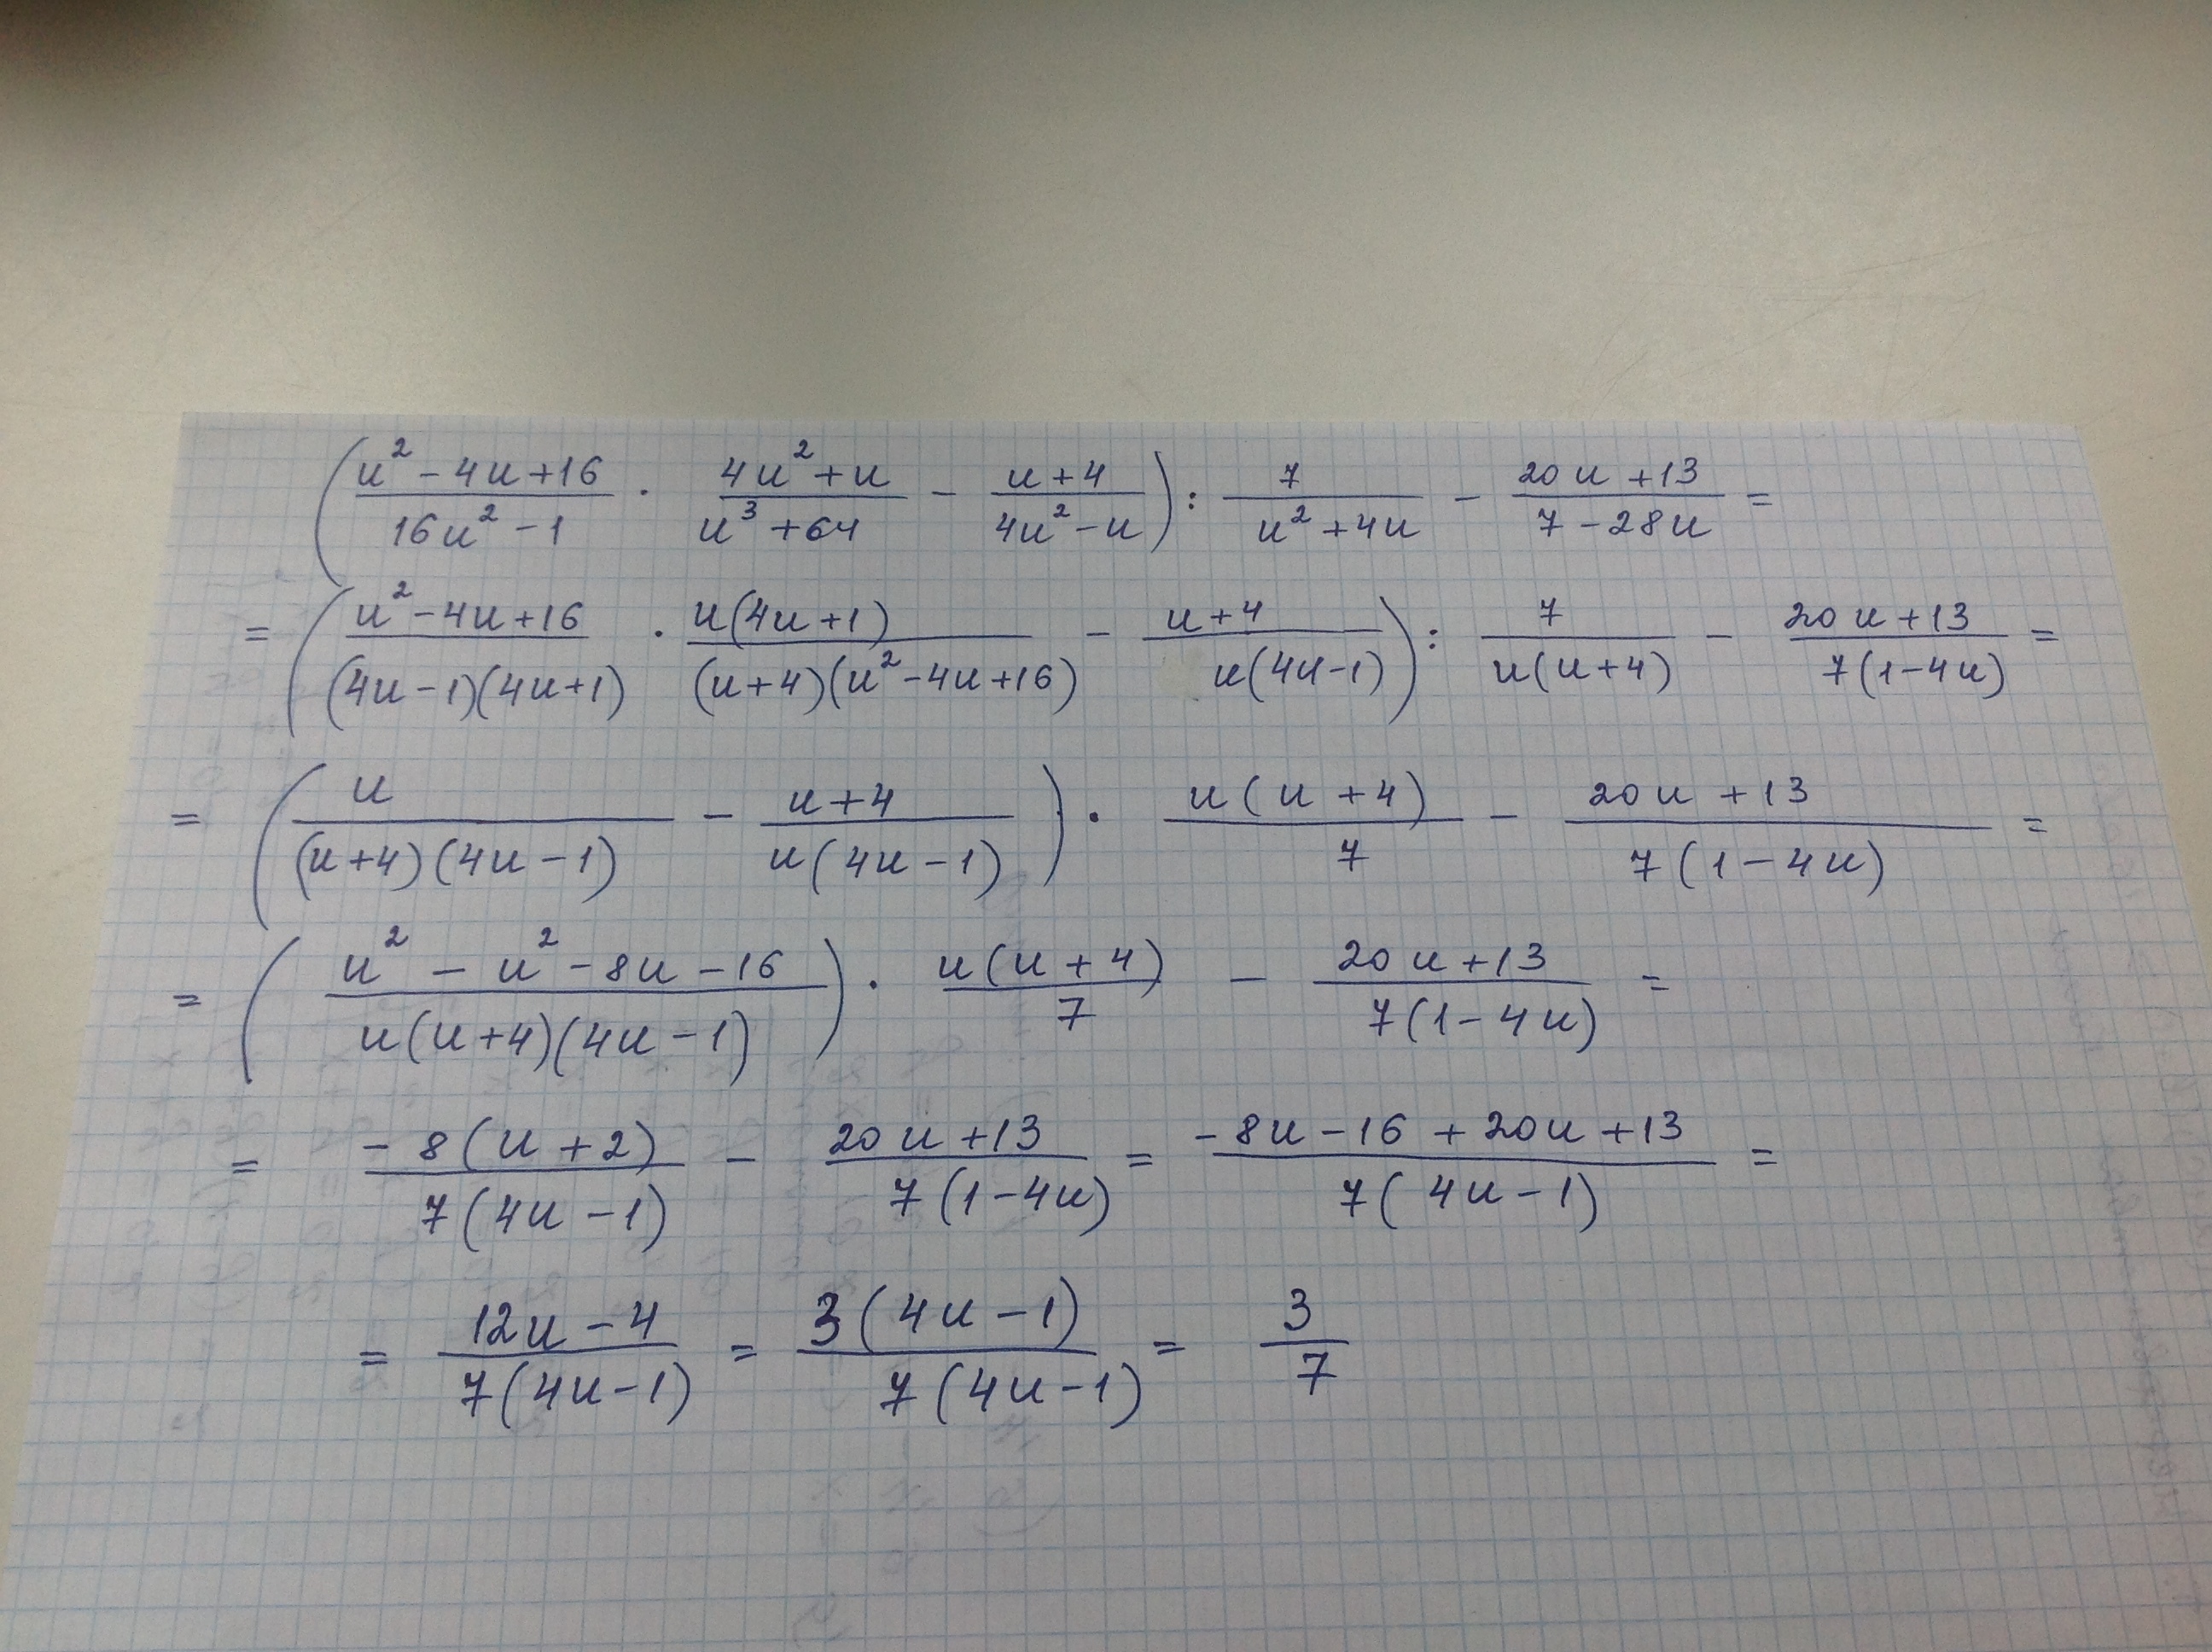 (u² - 4u + 16)/(16u² - 1) · (4u² + u)/(u³ + 64) - (u + 4)/(4u² - u)) : 7/(u² + 4u) - (20u + 13)/(7 - 28u) =
= ((u² - 4u + 16)/((4u - 1)(4u + 1)) · u(4u + 1)/((u + 4)(u² - 4u + 16)) - (u + 4)/(u(4u - 1))) : 7/(u(u + 4)) - (20u + 13)/(7(1 - 4u)) =
= (u/((u + 4)(4u - 1)) - (u + 4)/(u(4u - 1))) · u(u + 4)/7 - (20u + 13)/(7(1 - 4u)) =
= ((u² - u² - 8u - 16)/(u(u + 4)(4u - 1))) · u(u + 4)/7 - (20u + 13)/(7(1 - 4u)) =
= -8(u + 2)/(7(4u - 1)) - (20u + 13)/(7(1 - 4u)) = (-8u - 16 + 20u + 13)/(7(4u - 1)) =
= (12u - 4)/(7(4u - 1)) = 3(4u - 1)/(7(4u - 1)) = 3/7